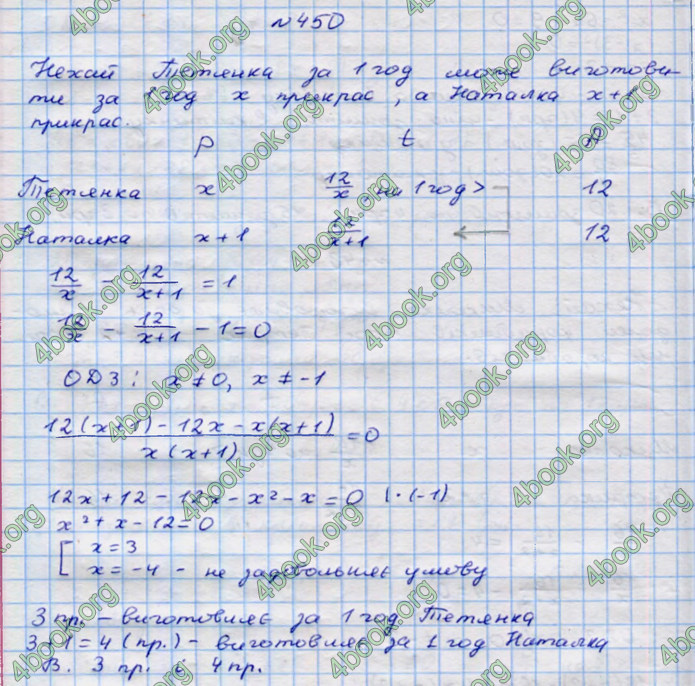 №450
Нехай Тетянка за 1 год може виготови-
ти за 1 год x прикрас, а Наталка x+1
прикрас.
P t A
Тетянка x 12/x на 1 год > 12
Наталка x+1 12/(x+1) ← 12
12/x - 12/(x+1) = 1
12/x - 12/(x+1) - 1 = 0
ОДЗ: x ≠ 0, x ≠ -1
(12(x+1) - 12x - x(x+1))/(x(x+1)) = 0
12x + 12 - 12x - x² - x = 0 |·(-1)
x² + x - 12 = 0
[ x = 3
x = -4 - не задовольняє умову
3 пр. - виготовляє за 1 год Тетянка
3+1=4 (пр.) - виготовляє за 1 год Наталка
В. 3 пр. і 4 пр.
4book.org